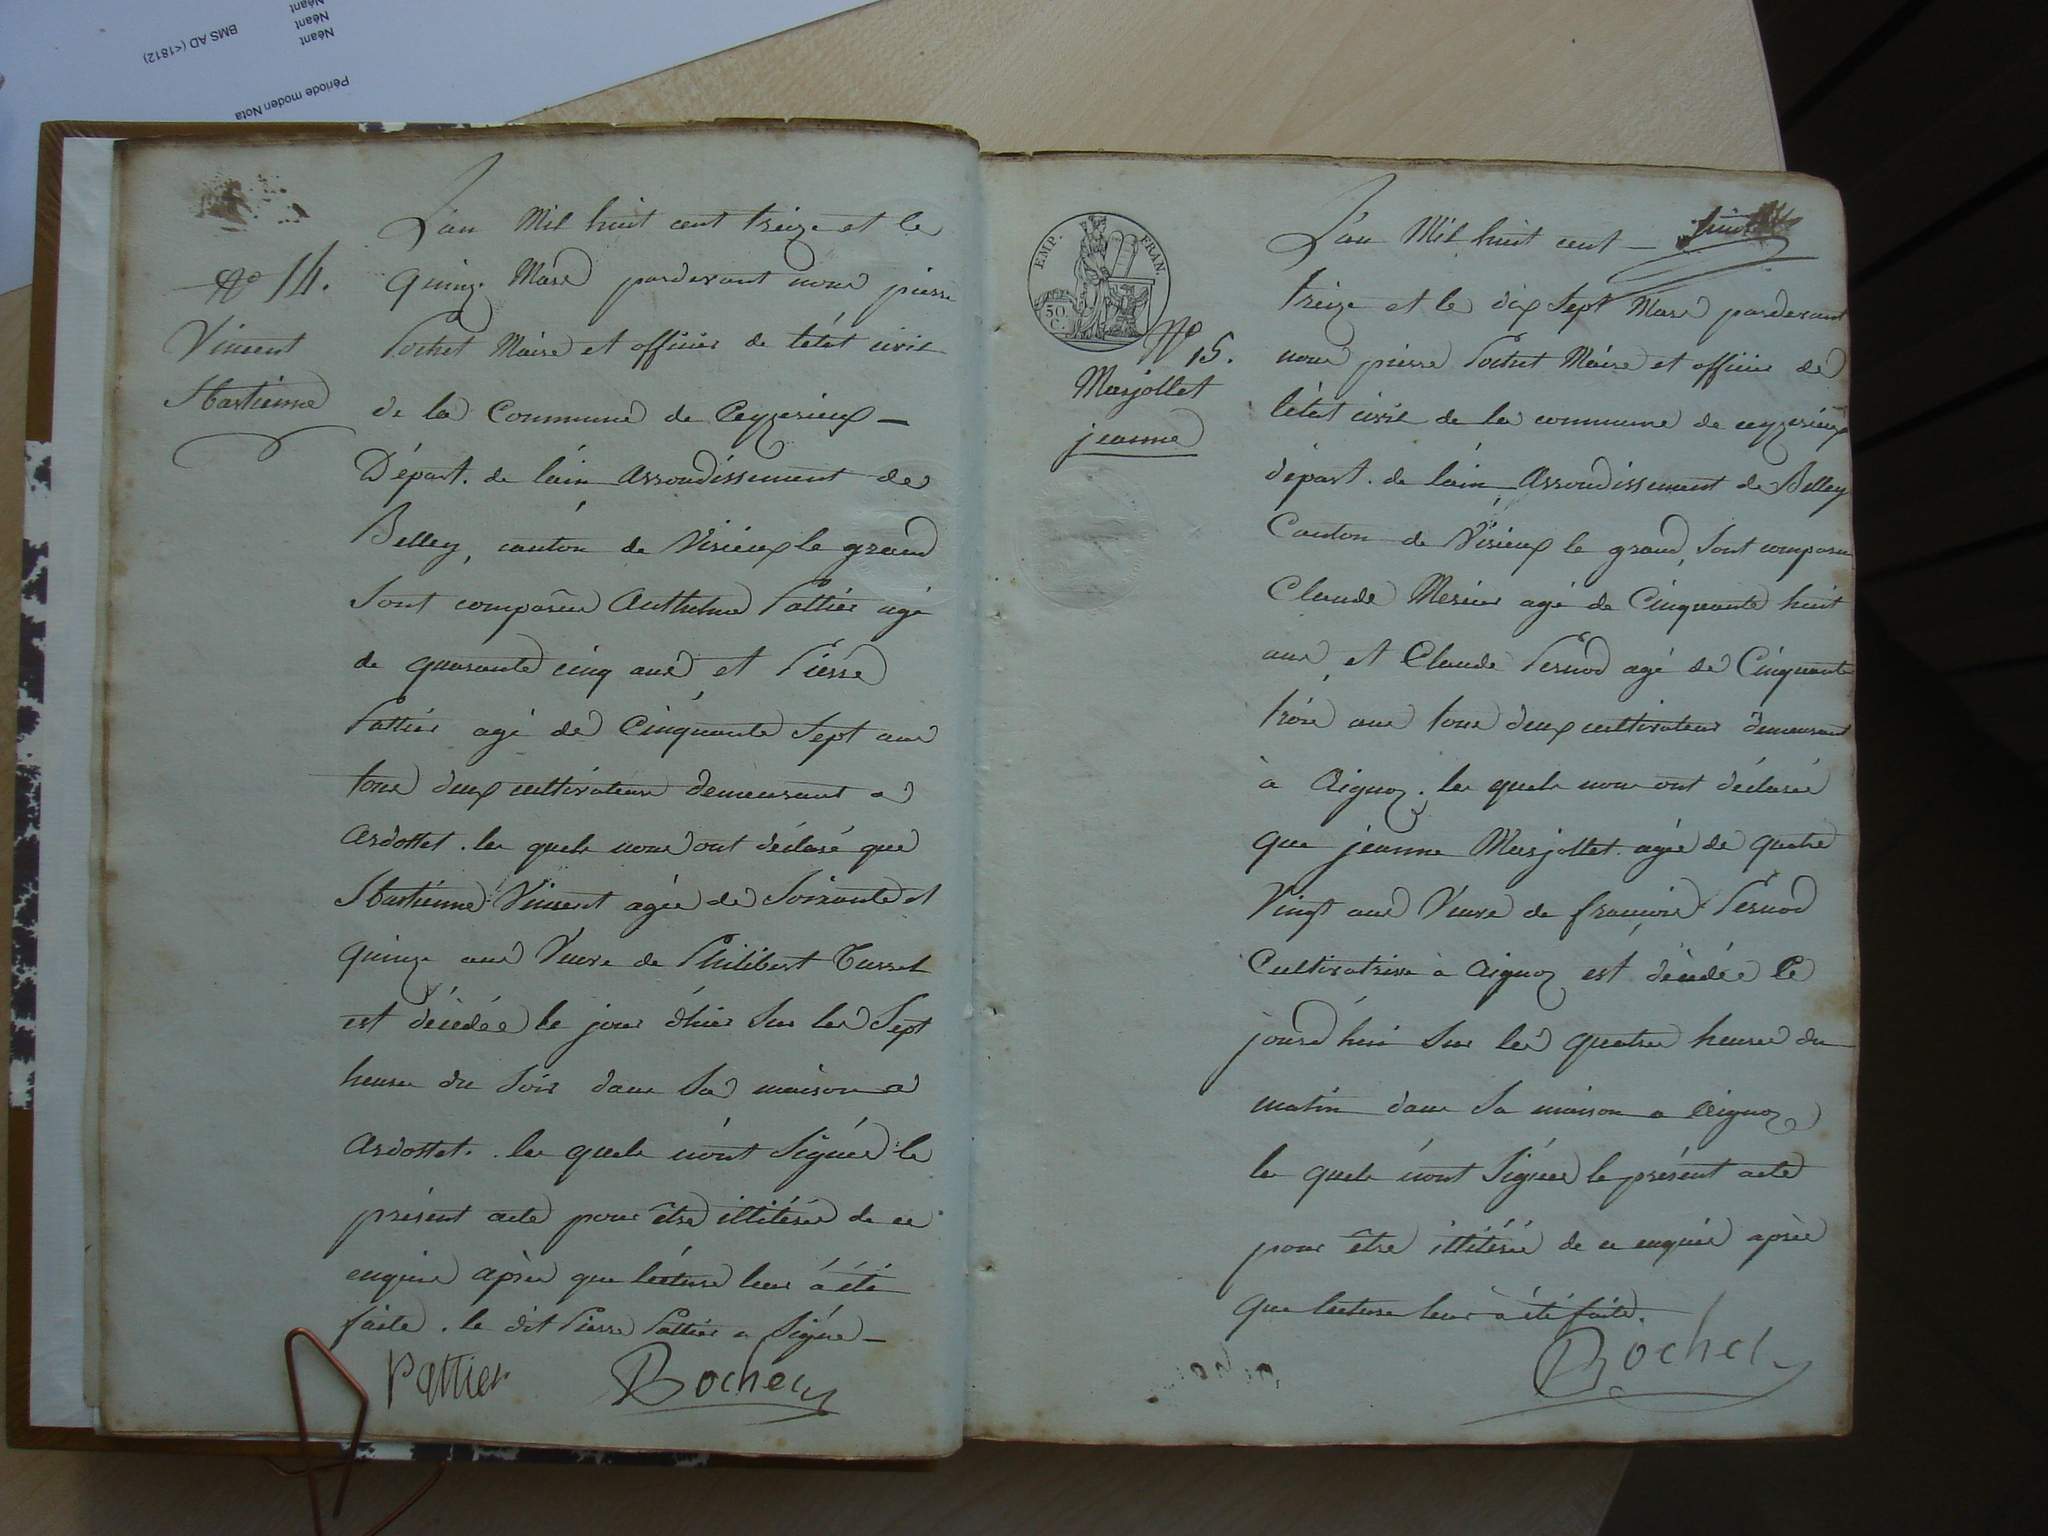 Néant
Néant
Néant
BMS AD (<1812)
Période moden Nota
L'an Mil huit cent treize et le
N° 14.
quinze Mars pardevant nous pierre
Vincent
Rochet Maire et officier de l'état civil
Hastienne
de la Commune de Ceyzerieux
Départ. de l'ain arrondissement de
Belley, canton de Virieux le grand
Sont comparus Anthelme Pattier agé
de quarante cinq ans et Pierre
Pattier agé de Cinquante Sept ans
tous deux cultivateurs demeurant a
ardosset. les quels nous ont déclaré que
Hastienne Vincent agée de Soixante et
quinze ans Veuve de Philibert Turrel
est décédée le jour d'hier Sur les Sept
heures du Soir dans Sa maison a
ardosset. les quels n'ont Signés le
présent acte pour être illitérés de ce
enquis après que lecture leur à été
faite. le dit Pierre Pattier a Signé
Pattier Rochet
EMP. FRAN.
50
C.
N° 15.
Marjollet
jeanne
L'an Mil huit cent huit
treize et le dix Sept Mars pardevant
nous pierre Rochet Maire et officier de
l'état civil de la commune de ceyzerieux
départ. de l'ain Arrondissement de Belley
Canton de Virieux le grand, Sont comparus
Claude Mercier agé de Cinquante huit
ans, et Claude Pernod agé de Cinquante
trois ans tous deux cultivateurs demeurant
à Aignoz. les quels nous ont déclaré
que jeanne Marjollet agée de quatre
Vingt ans Veuve de françois Pernod
Cultivatrice à Aignoz est décédée Ce
jourd'hui Sur les quatre heures du
matin dans Sa maison a Aignoz
les quels n'ont Signés le présent acte
pour être illitérés de ce enquis après
que lecture leur à été faite.
Rochet